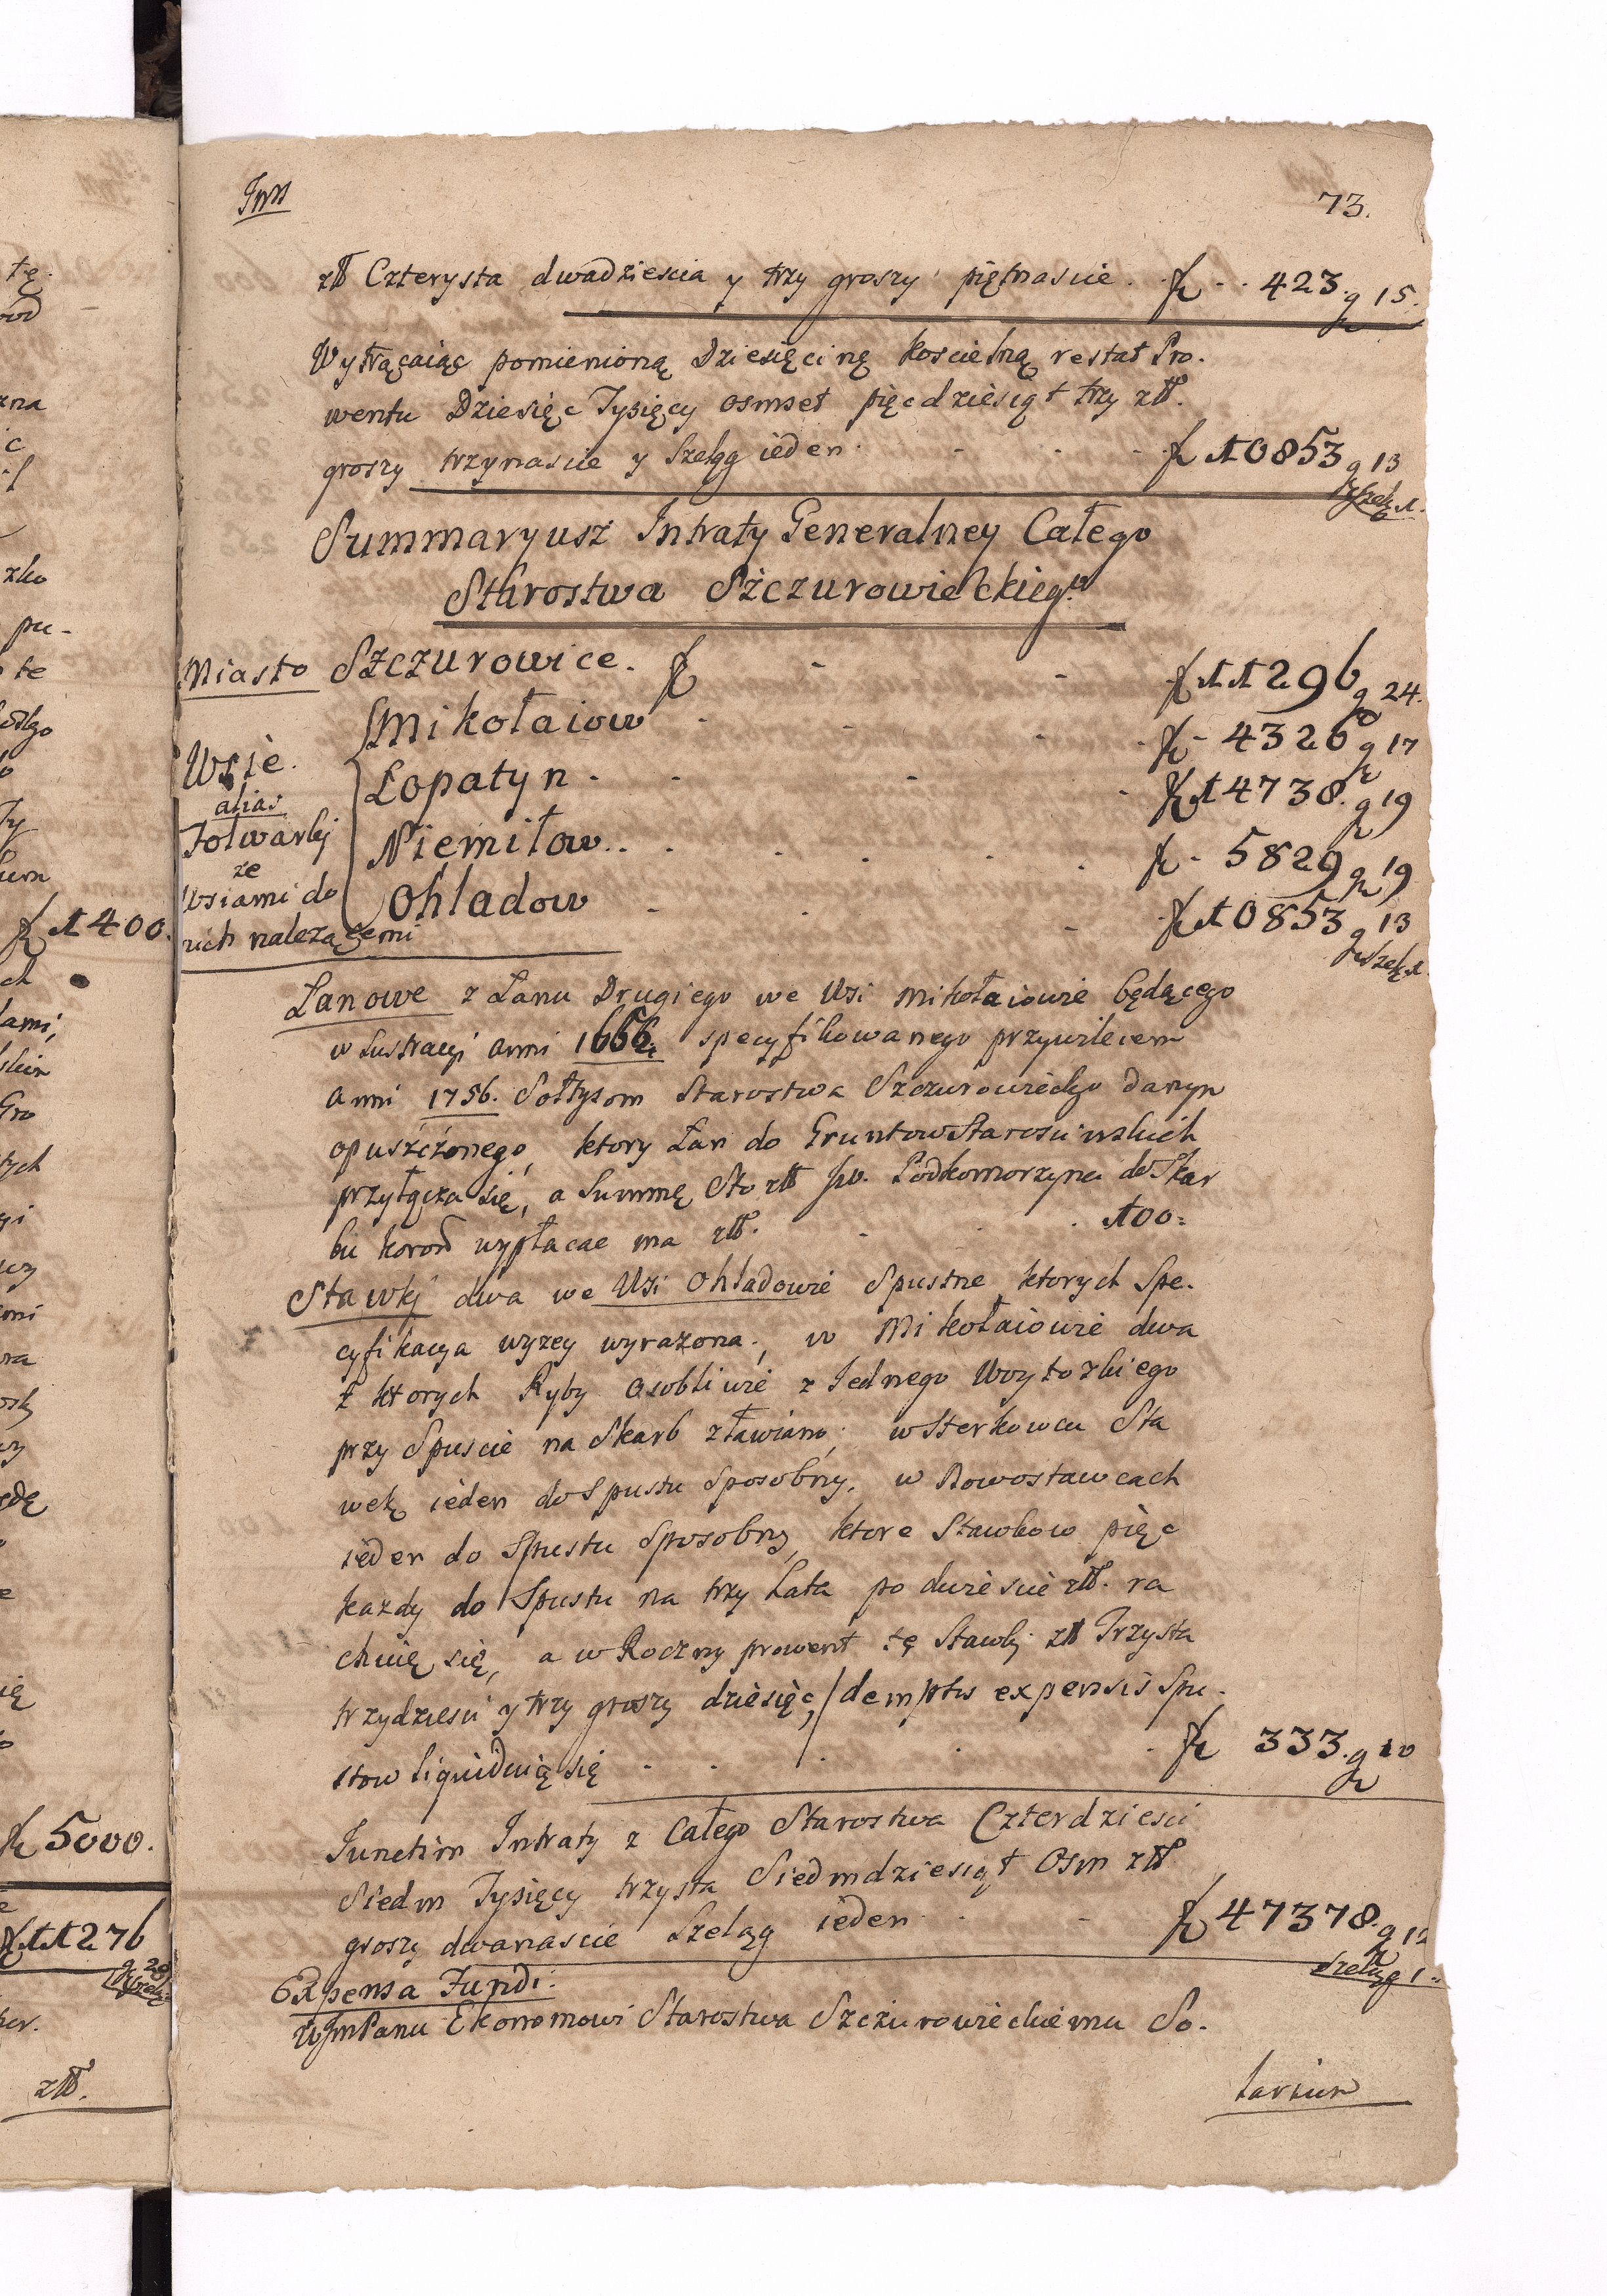 73.
złł Czterysta dwadziescia y trzy groszy pięłnascie. f 423. g 15.
Wytrącaiąc pomienioną Dziesięcinę koscielną restat Pro-
wentu Dziesięc Tysięcy osmset pięcdziesiąt trzy złł.
groszy trzynascie y Szeląg ieden. f 10853 g 13
Szelą 1.
Summaryusz Intraty Generalney Całego
Starostwa Szczurowieckieg°
Miasto Szczurowice. f 11296 g 24.
Mikołaiow f 4326 g 17
Wsie. Łopatyn f 14738. g 19
alias
Folwarki Niemiłow f 5829 g 19
ze
Wsiami do Ohladow f 10853 g 13
nich należącemi Szelą 1.
Lanowe z Łanu Drugiego we Wsi Mikołaiowie będącego
w Lustracyi anni 1656. specyfikowanego przywileiem
anni 1756. Sołtysom Starostwa Szczurowieckgo danym
opuszczonego, ktory Łan do Gruntow Staroscińskich
przyłącza się, a Summę Sto złł JW. Podkomorzyna do Skar
bu koron wypłacac ma złł. 100=
Stawki dwa we Wsi Ohladowie Spustne, ktorych Spe-
cyfikacya wyzey wyrazona; w Mikołaiowie dwa
z ktorych Ryby osobliwie z Iednego Woytozkiego
przy Spuscie na Skarb zławiano; w Sterkowcu Sta
wek ieden do Spustu Sposobny, w Nowostawcach
ieden do Spustu Sposobny, ktore Stawkow pięc
kazdy do Spustu na trzy Lata po dwiescie złł. ra
chuię się, a w Roczny prowent tę Stawki złł Trzysta
trzydziesci y trzy groszy dziesięc, / demptis expensis Spu-
stow liquiduią się f 333. g 10
Junctim Intraty z Całego Starostwa Czterdziesci
Siedm Tysięcy trzysta Siedmdziesiąt Osm złł
groszy dwanascie Szeląg ieden f 47378. g 12
Szeląg 1.
Expensa Fundi.
JmPanu Ekonomowi Starostwa Szczurowieckiemu So-
larium
f 1400.
f 5000.
f 11276
złł.